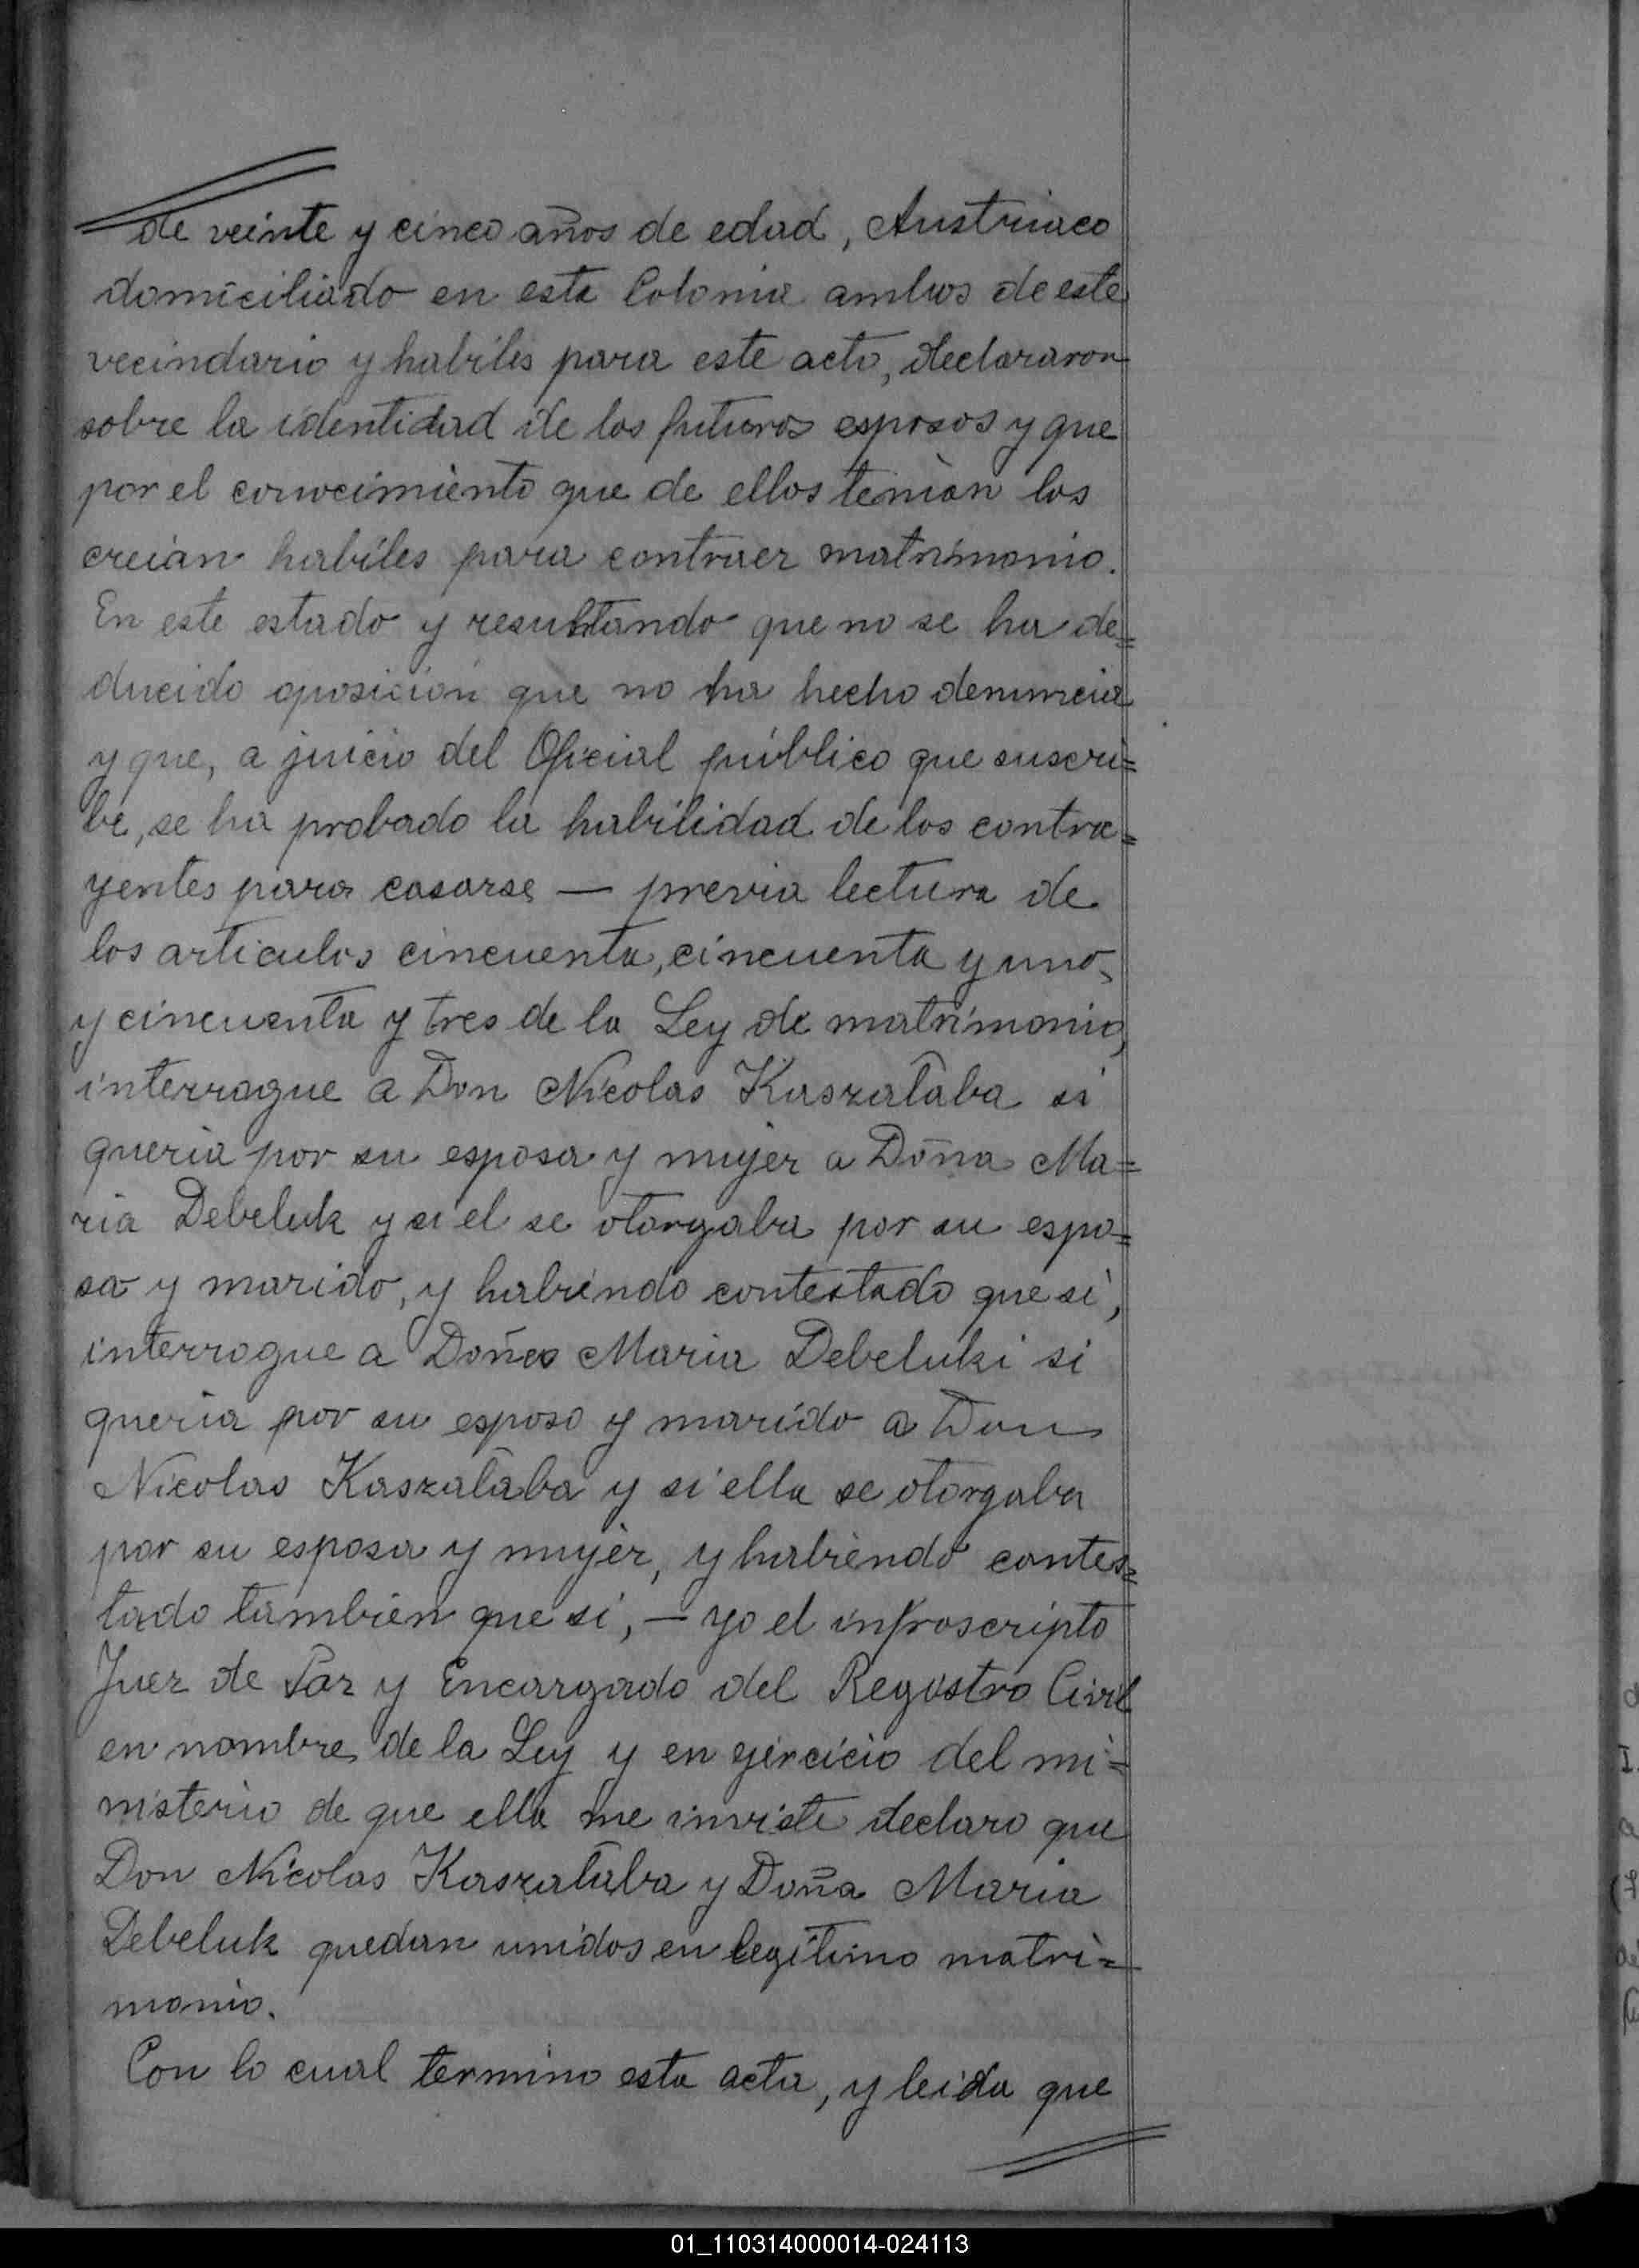 de veinte y cinco años de edad, Austriaco
domiciliado en esta Colonia ambos de este
vecindario y habiles para este acto, declararon
sobre la identidad de los futuros esposos y que
por el conocimiento que de ellos tenian los
creian habiles para contraer matrimonio.
En este estado y resultando que no se ha de=
ducido oposición que no ha hecho denuncia
y que, a juicio del Oficial público que suscri=
be, se ha probado la habilidad de los contra=
yentes para casarse — previa lectura de
los articulos cincuenta, cincuenta y uno,
y cincuenta y tres de la Ley de matrimonio,
interrogue a Don Nicolas Kaszalaba si
queria por su esposa y mujer a Doña Ma=
ria Debeluk y si el se otorgaba por su espo=
so y marido, y habiendo contestado que si,
interrogue a Doña Maria Debeluki si
queria por su esposo y marido a Don
Nicolas Kaszalaba y si ella se otorgaba
por su esposa y mujer, y habiendo contes=
tado tambien que si, — yo el infroscripto
Juez de Paz y Encargado del Registro Civil
en nombre de la Ley y en ejercicio del mi=
nisterio de que ella me inviste declaro que
Don Nicolas Kaszalaba y Doña Maria
Debeluk quedan unidos en legitimo matri=
monio.
Con lo cual termino esta acta, y leida que
01_110314000014-024113